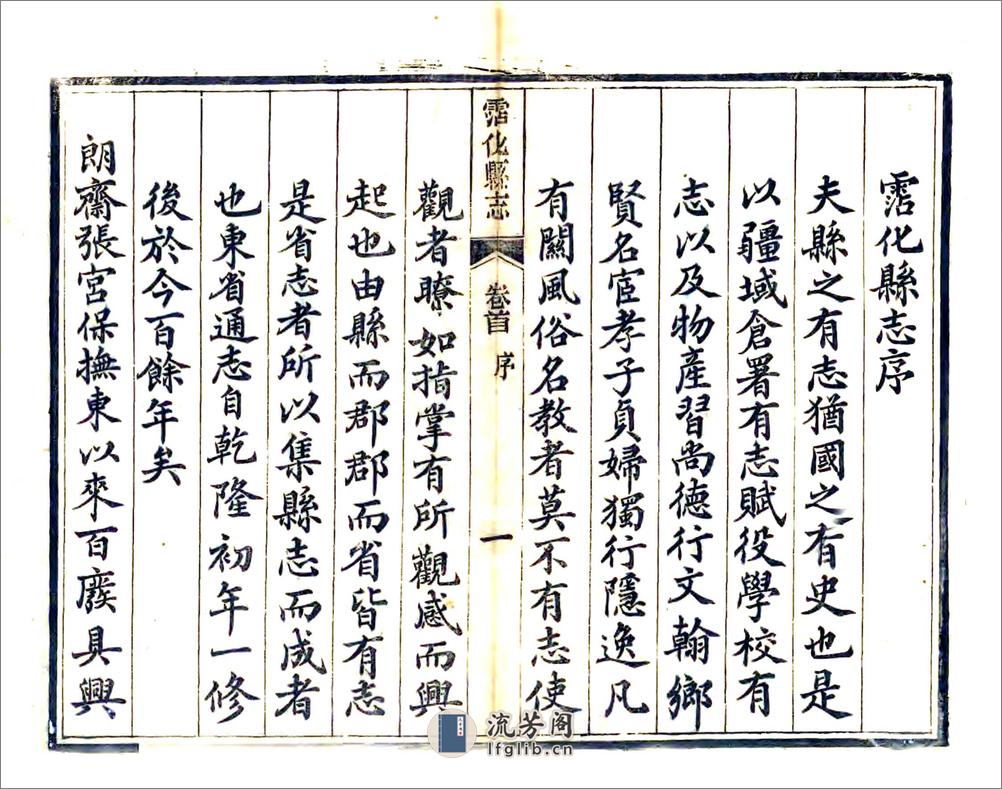 霑化縣志序
夫縣之有志猶國之有史也是
以疆域倉署有志賦役學校有
志以及物產習尚德行文翰鄉
賢名宦孝子貞婦獨行隱逸凡
有關風俗名教者莫不有志使
霑化縣志 卷首 序 一
觀者瞭如指掌有所觀感而興
起也由縣而郡郡而省皆有志
是省志者所以集縣志而成者
也東省通志自乾隆初年一修
後於今百餘年矣
朗齋張宮保撫東以來百廢具興
流芳阁
lfglib.cn